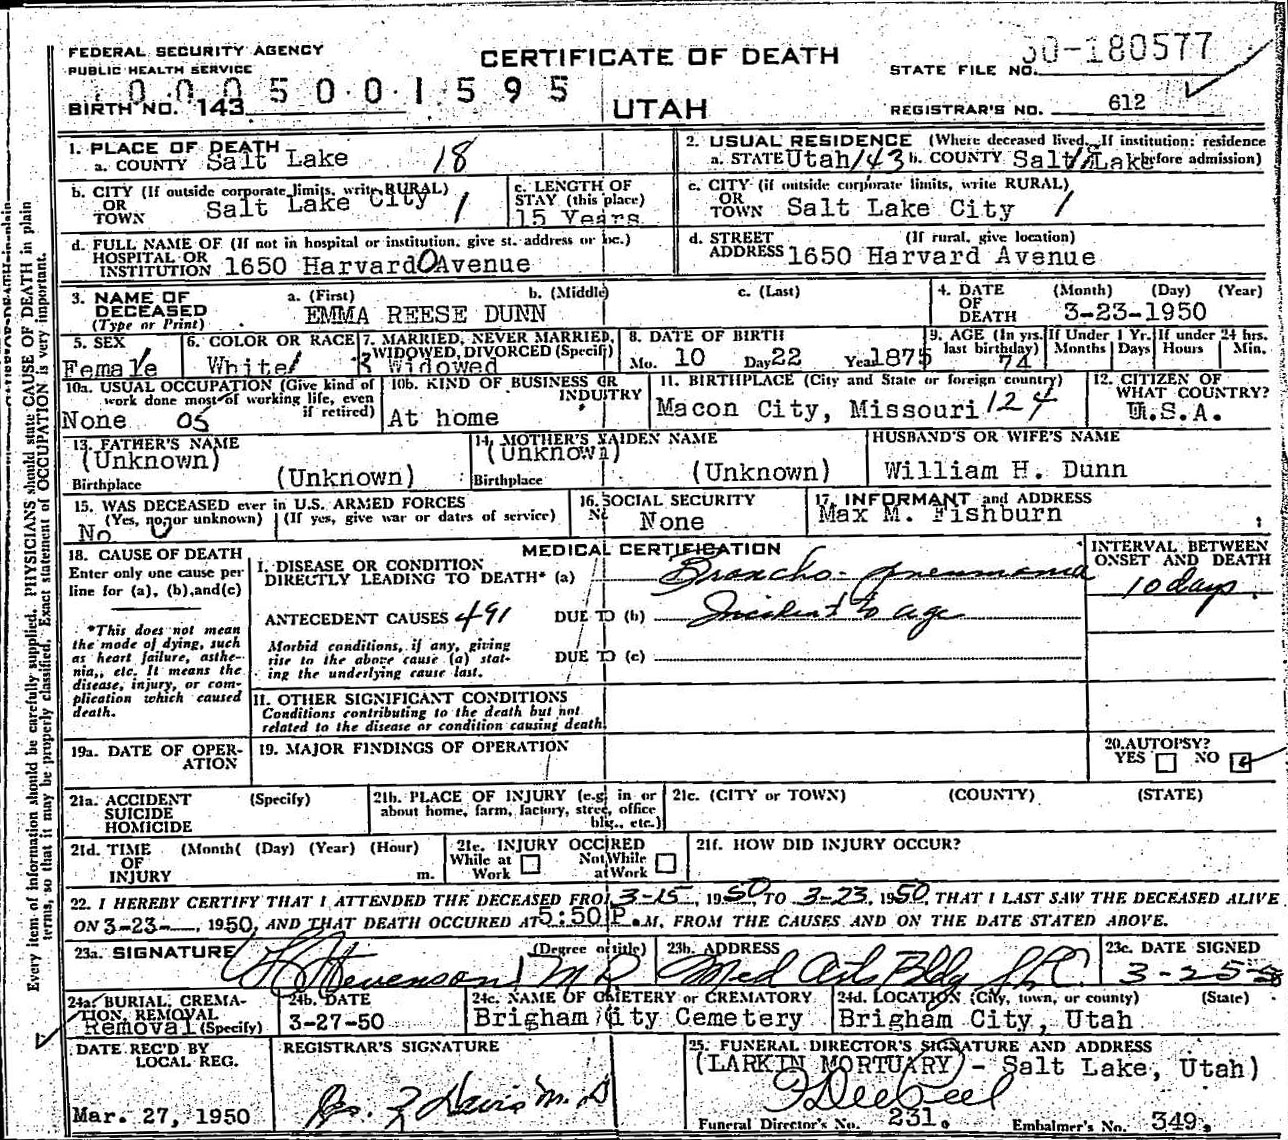 FEDERAL SECURITY AGENCY
PUBLIC HEALTH SERVICE
CERTIFICATE OF DEATH
STATE FILE NO. 50-180577
0 0 0 5 0 0 1 5 9 5
BIRTH NO. 143
UTAH
REGISTRAR'S NO. 612
1. PLACE OF DEATH
a. COUNTY Salt Lake 18
2. USUAL RESIDENCE (Where deceased lived. If institution: residence before admission)
a. STATE Utah 143 b. COUNTY Salt Lake
b. CITY (If outside corporate limits, write RURAL)
OR
TOWN Salt Lake City 1
c. LENGTH OF
STAY (this place)
15 Years
c. CITY (if outside corporate limits, write RURAL)
OR
TOWN Salt Lake City 1
d. FULL NAME OF (If not in hospital or institution, give st. address or loc.)
HOSPITAL OR
INSTITUTION 1650 Harvard 0 Avenue
d. STREET (If rural, give location)
ADDRESS 1650 Harvard Avenue
3. NAME OF DECEASED
(Type or Print)
a. (First) b. (Middle) c. (Last)
EMMA REESE DUNN
4. DATE OF DEATH (Month) (Day) (Year)
3-23-1950
5. SEX
Female
6. COLOR OR RACE
White 1
7. MARRIED, NEVER MARRIED,
WIDOWED, DIVORCED (Specify)
3 Widowed
8. DATE OF BIRTH
Mo. 10 Day 22 Year 1875
9. AGE (In yrs. last birthday)
74
If Under 1 Yr.
Months Days
If under 24 hrs.
Hours Min.
10a. USUAL OCCUPATION (Give kind of
work done most of working life, even
if retired)
None 05
10b. KIND OF BUSINESS OR
INDUSTRY
At home
11. BIRTHPLACE (City and State or foreign country)
Macon City, Missouri 124
12. CITIZEN OF
WHAT COUNTRY?
U.S.A.
13. FATHER'S NAME
(Unknown)
Birthplace (Unknown)
14. MOTHER'S MAIDEN NAME
(Unknown)
Birthplace (Unknown)
HUSBAND'S OR WIFE'S NAME
William H. Dunn
15. WAS DECEASED ever in U.S. ARMED FORCES
(Yes, no, or unknown) (If yes, give war or dates of service)
No 0
16. SOCIAL SECURITY
No. None
17. INFORMANT and ADDRESS
Max M. Fishburn
18. CAUSE OF DEATH
Enter only one cause per
line for (a), (b), and (c)
*This does not mean
the mode of dying, such
as heart failure, asthe-
nia, etc. It means the
disease, injury, or com-
plication which caused
death.
MEDICAL CERTIFICATION
I. DISEASE OR CONDITION
DIRECTLY LEADING TO DEATH* (a) Broncho-pneumonia
ANTECEDENT CAUSES 491 DUE TO (b) Incident to age
Morbid conditions, if any, giving
rise to the above cause (a) stat-
ing the underlying cause last.
DUE TO (c)
INTERVAL BETWEEN
ONSET AND DEATH
10 days
II. OTHER SIGNIFICANT CONDITIONS
Conditions contributing to the death but not
related to the disease or condition causing death.
19a. DATE OF OPER-
ATION
19. MAJOR FINDINGS OF OPERATION
20. AUTOPSY?
YES NO
21a. ACCIDENT (Specify)
SUICIDE
HOMICIDE
21b. PLACE OF INJURY (e.g. in or
about home, farm, factory, street, office
bldg., etc.)
21c. (CITY or TOWN) (COUNTY) (STATE)
21d. TIME (Month) (Day) (Year) (Hour)
OF
INJURY m.
21e. INJURY OCCIRED
While at Work Not While at Work
21f. HOW DID INJURY OCCUR?
22. I HEREBY CERTIFY THAT I ATTENDED THE DECEASED FROM 3-15, 1950 TO 3-23, 1950, THAT I LAST SAW THE DECEASED ALIVE
ON 3-23-, 1950, AND THAT DEATH OCCURED AT 5:50 P.M, FROM THE CAUSES AND ON THE DATE STATED ABOVE.
23a. SIGNATURE (Degree or title)
Stevenson MD
23b. ADDRESS
Med Arts Bldg SLC
23c. DATE SIGNED
3-25-5
24a. BURIAL, CREMA-
TION, REMOVAL
Removal (Specify)
24b. DATE
3-27-50
24c. NAME OF CEMETERY or CREMATORY
Brigham City Cemetery
24d. LOCATION (City, town, or county) (State)
Brigham City, Utah
DATE REC'D BY
LOCAL REG.
Mar. 27, 1950
REGISTRAR'S SIGNATURE
25. FUNERAL DIRECTOR'S SIGNATURE AND ADDRESS
(LARKIN MORTUARY) - Salt Lake, Utah)
Funeral Director's No. 231. Embalmer's No. 349.
Every item of information should be carefully supplied. PHYSICIANS should state CAUSE OF DEATH in plain
terms, so that it may be properly classified. Exact statement of OCCUPATION is very important.